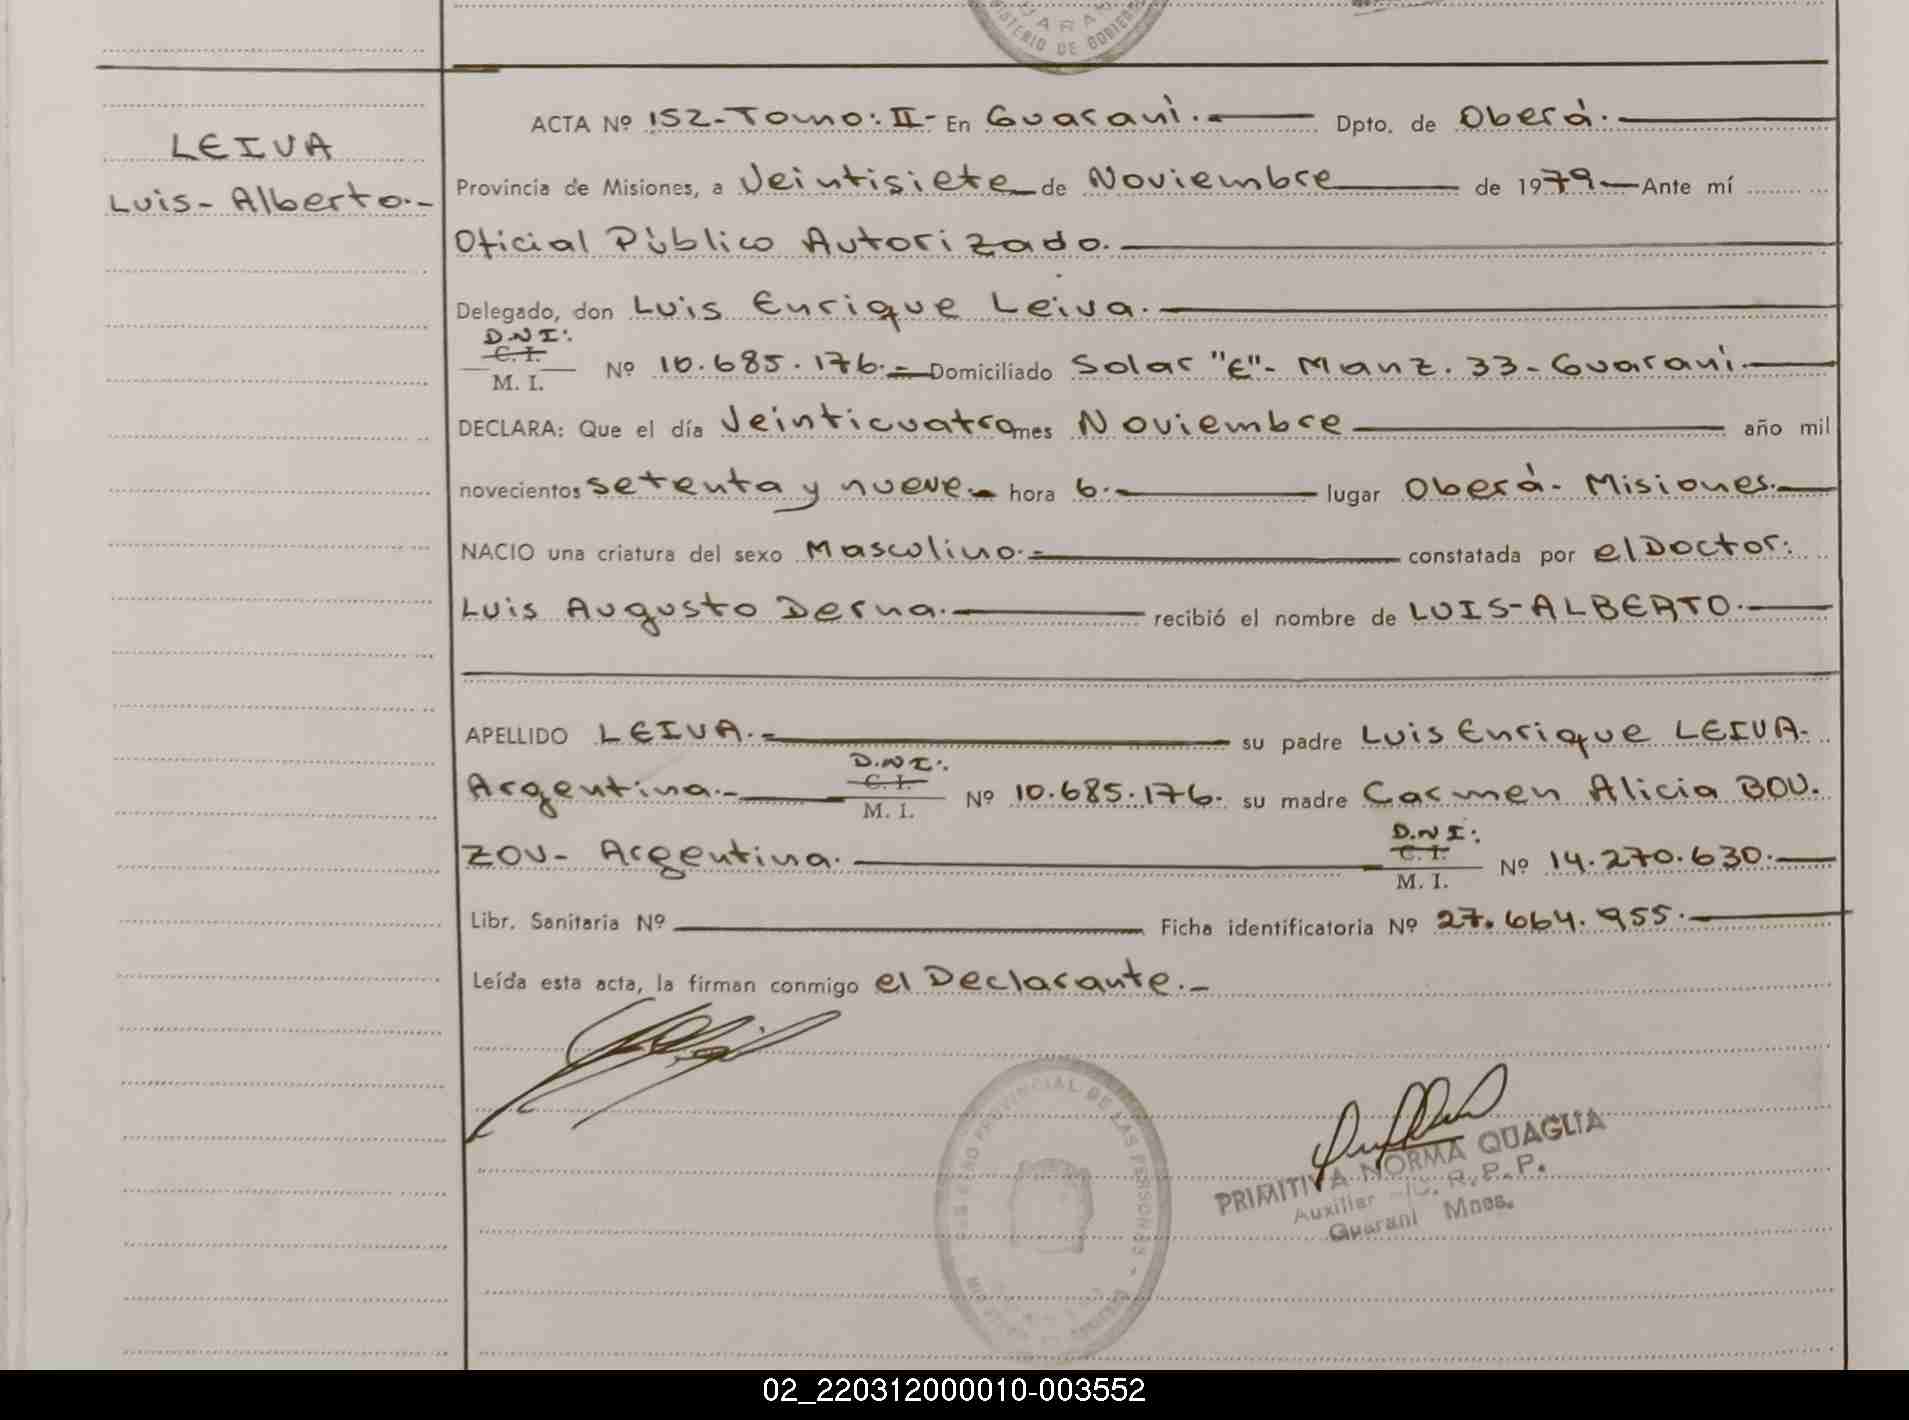 MINISTERIO DE GOBIERNO
LEIVA
Luis- Alberto.-
ACTA Nº 152-Tomo: II- En Guaraní. Dpto. de Oberá.
Provincia de Misiones, a Veintisiete de Noviembre de 1979 Ante mí
Oficial Público Autorizado.
Delegado, don Luis Enrique Leiva.
D.N.I:
C. I.
M. I.
Nº 10.685.176.- Domiciliado Solar "E"- Manz. 33- Guaraní.
DECLARA: Que el día Veinticuatro mes Noviembre año mil
novecientos setenta y nueve.- hora 6.- lugar Oberá- Misiones.
NACIO una criatura del sexo Masculino.- constatada por el Doctor:
Luis Augusto Derna. recibió el nombre de LUIS-ALBERTO.
APELLIDO LEIVA.- su padre Luis Enrique LEIVA.
D.N.I:
Argentina.- C. I. Nº 10.685.176. su madre Carmen Alicia BOU.
M. I.
D.N.I:
ZOU- Argentina. C. I. Nº 14.270.630.
M. I.
Libr. Sanitaria Nº Ficha identificatoria Nº 27.664.955.
Leída esta acta, la firman conmigo el Declarante.-
PROVINCIAL DE LAS PERSONAS
PRIMITIVA NORMA QUAGLIA
Auxiliar R.P.P.
Guaraní Mnes.
02_220312000010-003552